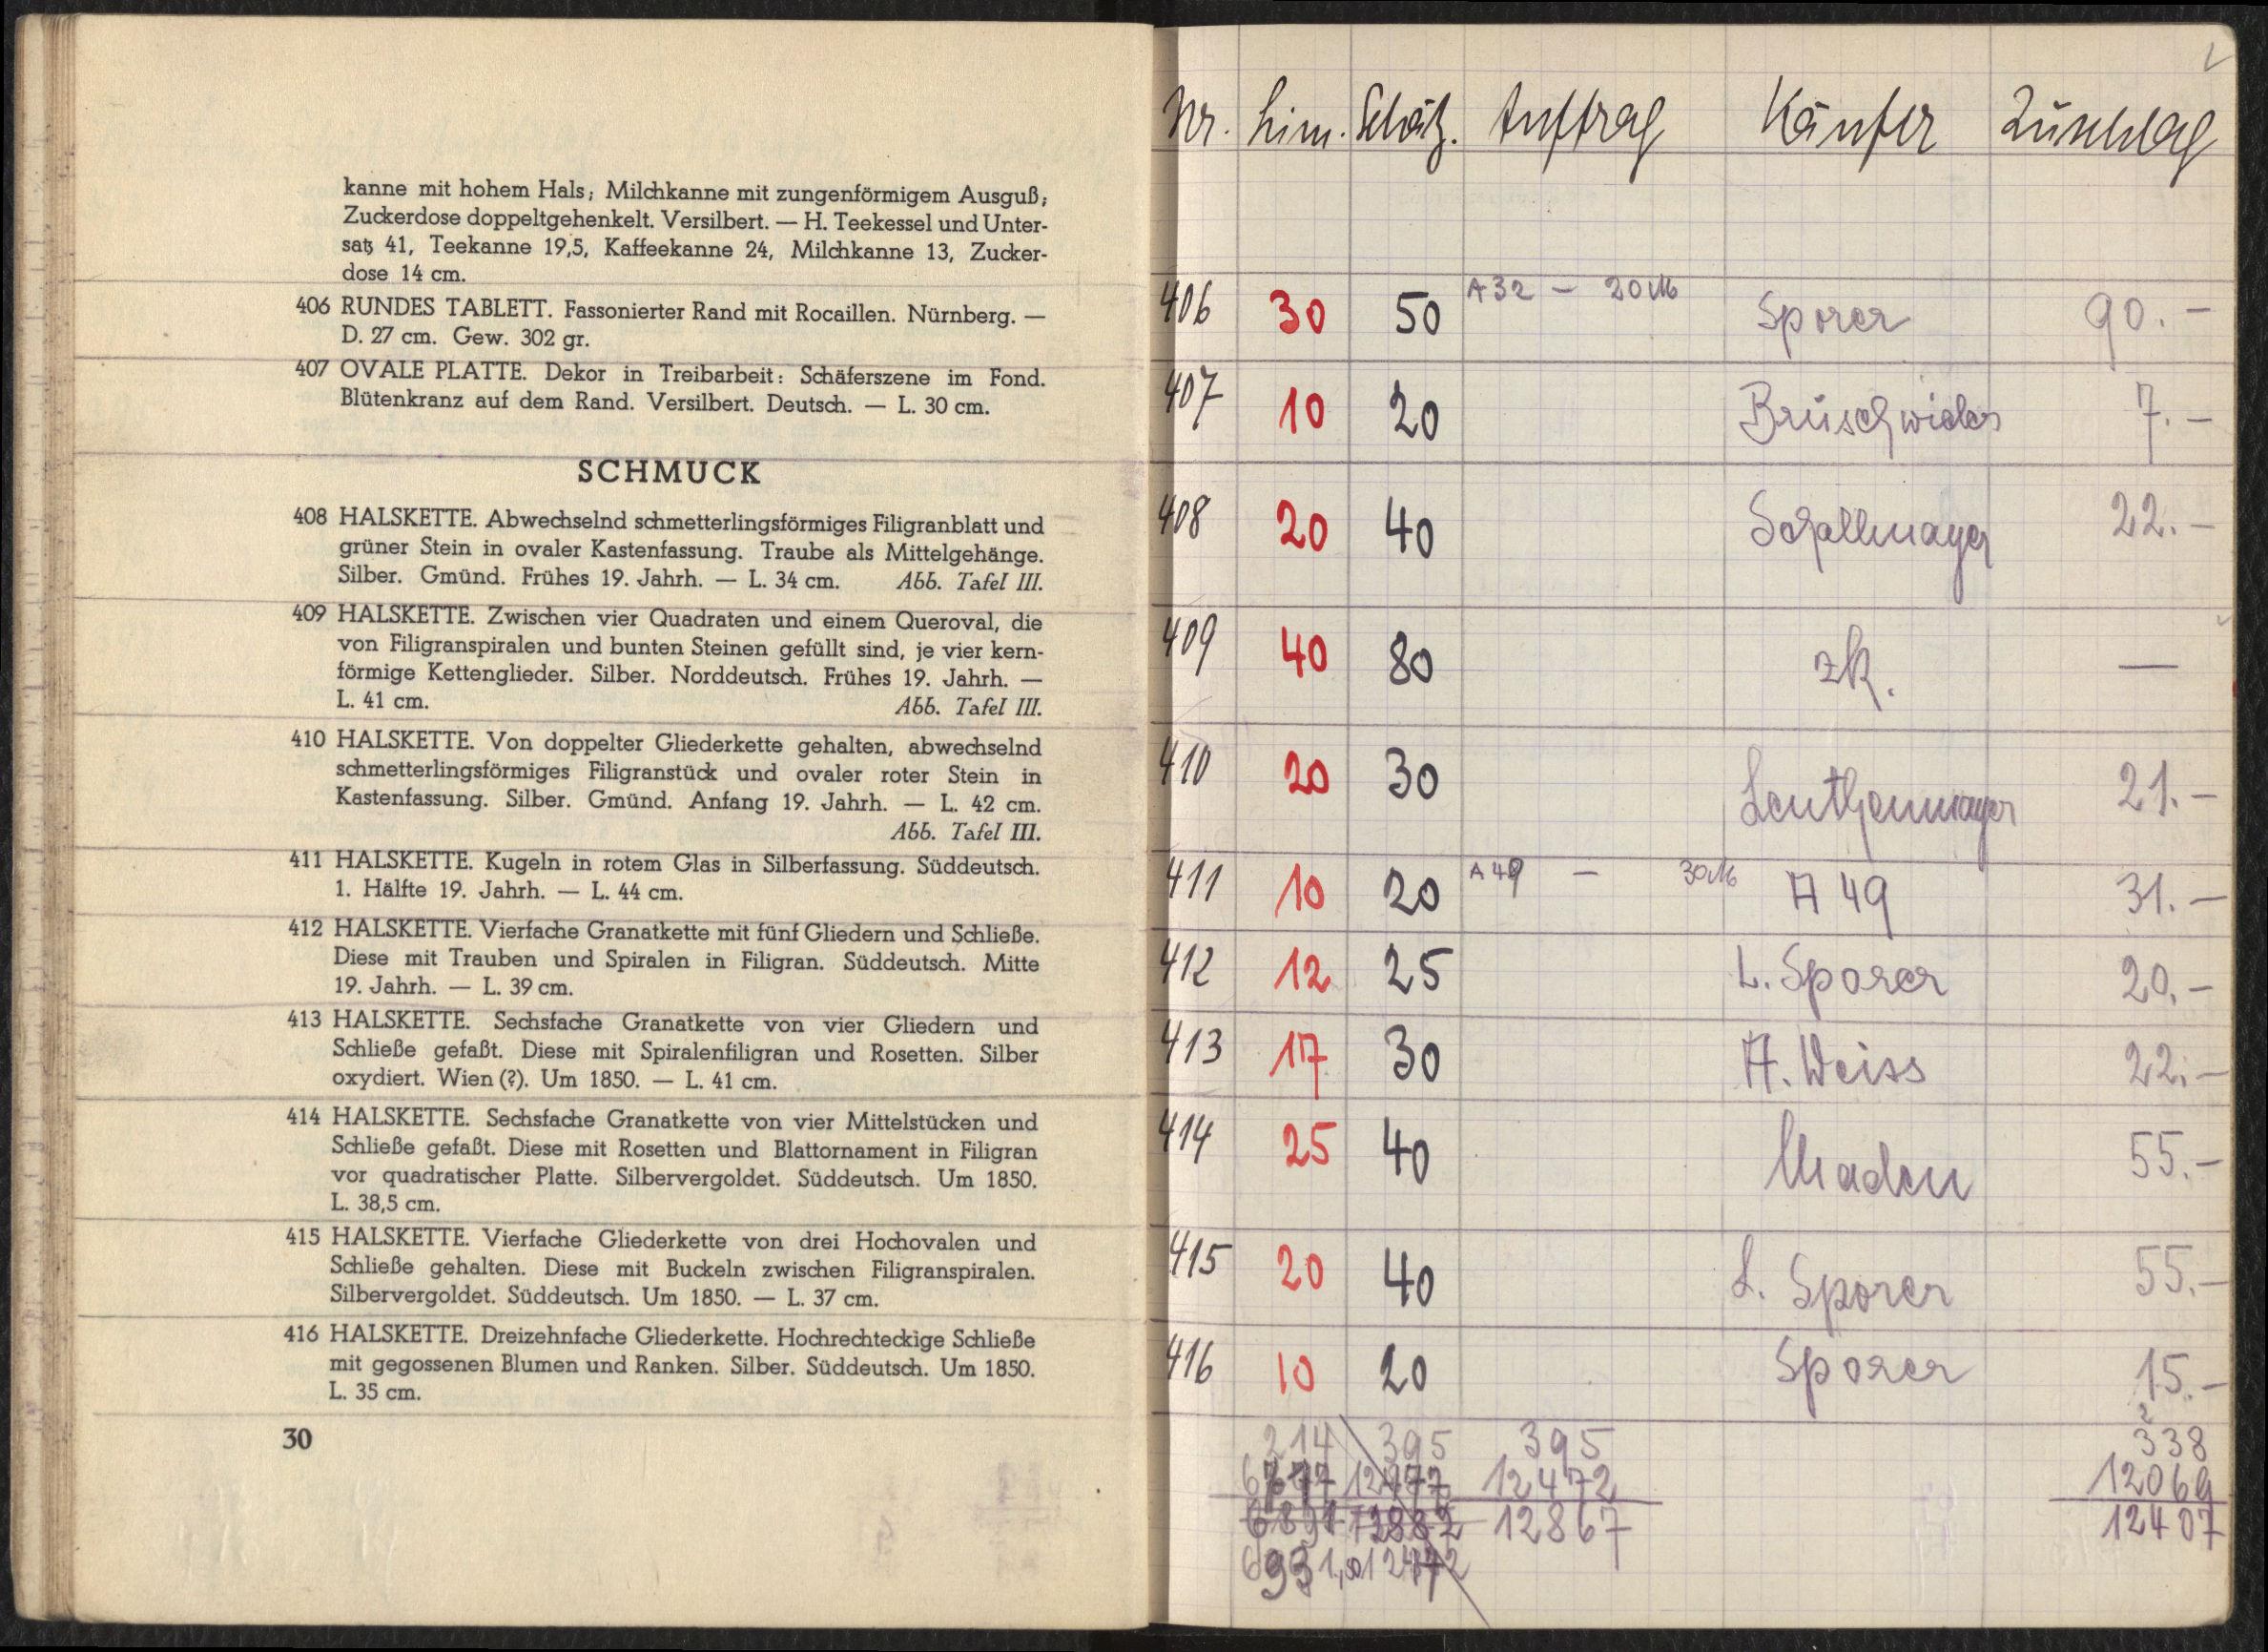 kanne mit hohem Hals; Milchkanne mit zungenförmigem Ausguß;
Zuckerdose doppeltgehenkelt. Versilbert. — H. Teekessel und Unter-
satz 41, Teekanne 19,5, Kaffeekanne 24, Milchkanne 13, Zucker-
dose 14 cm.
406 RUNDES TABLETT. Fassonierter Rand mit Rocaillen. Nürnberg. —
D. 27 cm. Gew. 302 gr.
407 OVALE PLATTE. Dekor in Treibarbeit: Schäferszene im Fond.
Blütenkranz auf dem Rand. Versilbert. Deutsch. — L. 30 cm.
SCHMUCK
408 HALSKETTE. Abwechselnd schmetterlingsförmiges Filigranblatt und
grüner Stein in ovaler Kastenfassung. Traube als Mittelgehänge.
Silber. Gmünd. Frühes 19. Jahrh. — L. 34 cm. Abb. Tafel III.
409 HALSKETTE. Zwischen vier Quadraten und einem Queroval, die
von Filigranspiralen und bunten Steinen gefüllt sind, je vier kern-
förmige Kettenglieder. Silber. Norddeutsch. Frühes 19. Jahrh. —
L. 41 cm. Abb. Tafel III.
410 HALSKETTE. Von doppelter Gliederkette gehalten, abwechselnd
schmetterlingsförmiges Filigranstück und ovaler roter Stein in
Kastenfassung. Silber. Gmünd. Anfang 19. Jahrh. — L. 42 cm.
Abb. Tafel III.
411 HALSKETTE. Kugeln in rotem Glas in Silberfassung. Süddeutsch.
1. Hälfte 19. Jahrh. — L. 44 cm.
412 HALSKETTE. Vierfache Granatkette mit fünf Gliedern und Schließe.
Diese mit Trauben und Spiralen in Filigran. Süddeutsch. Mitte
19. Jahrh. — L. 39 cm.
413 HALSKETTE. Sechsfache Granatkette von vier Gliedern und
Schließe gefaßt. Diese mit Spiralenfiligran und Rosetten. Silber
oxydiert. Wien (?). Um 1850. — L. 41 cm.
414 HALSKETTE. Sechsfache Granatkette von vier Mittelstücken und
Schließe gefaßt. Diese mit Rosetten und Blattornament in Filigran
vor quadratischer Platte. Silbervergoldet. Süddeutsch. Um 1850.
L. 38,5 cm.
415 HALSKETTE. Vierfache Gliederkette von drei Hochovalen und
Schließe gehalten. Diese mit Buckeln zwischen Filigranspiralen.
Silbervergoldet. Süddeutsch. Um 1850. — L. 37 cm.
416 HALSKETTE. Dreizehnfache Gliederkette. Hochrechteckige Schließe
mit gegossenen Blumen und Ranken. Silber. Süddeutsch. Um 1850.
L. 35 cm.
30
Nr. Lim. Schätz. Auftrag Käufer Zuschlag
406 30 50 A 32 — 20 M Sporer 90.—
407 10 20 Brüschwiler 7.—
408 20 40 Schallmayer 22.—
409 40 80 zk. —
410 20 30 Leuthenmayer 21.—
411 10 20 A 49 — 30 M A 49 31.—
412 12 25 L. Sporer 20.—
413 17 30 A. Weiss 22.—
414 25 40 Maden 55.—
415 20 40 L. Sporer 55.—
416 10 20 Sporer 15.—
214 395 395 338
12472 12069
12867 12407